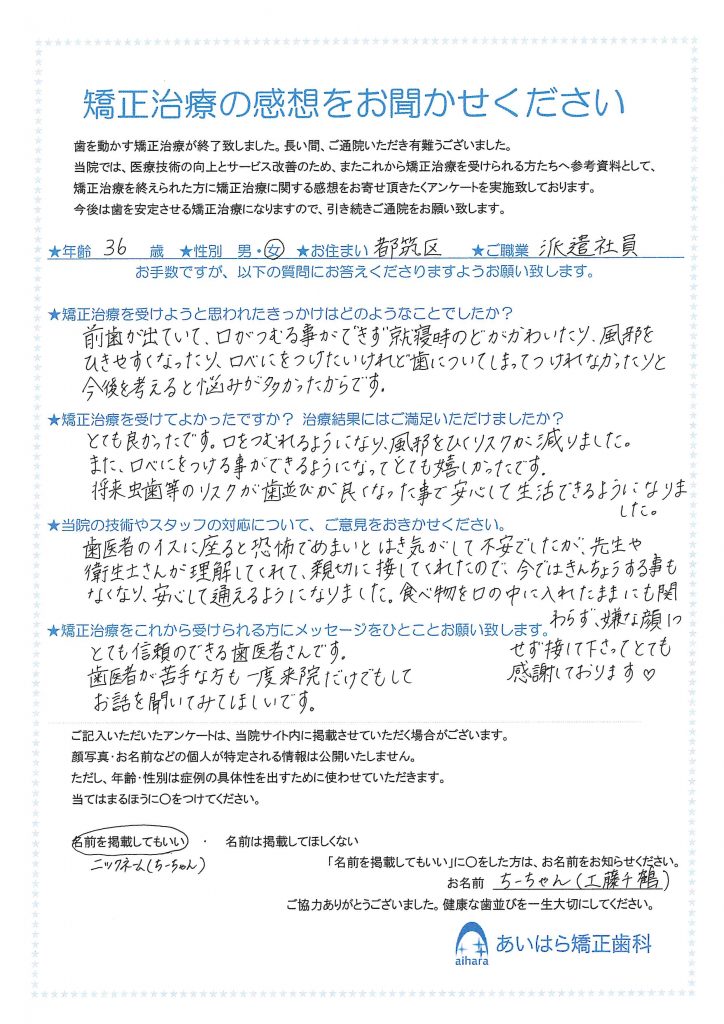 矯正治療の感想をお聞かせください
歯を動かす矯正治療が終了致しました。長い間、ご通院いただき有難うございました。
当院では、医療技術の向上とサービス改善のため、またこれから矯正治療を受けられる方たちへ参考資料として、
矯正治療を終えられた方に矯正治療に関する感想をお寄せ頂きたくアンケートを実施致しております。
今後は歯を安定させる矯正治療になりますので、引き続きご通院をお願い致します。
★年齢 36 歳 ★性別 男・女 ★お住まい 都筑区 ★ご職業 派遣社員
お手数ですが、以下の質問にお答えくださりますようお願い致します。
★矯正治療を受けようと思われたきっかけはどのようなことでしたか?
前歯が出ていて、口がつむる事ができず就寝時のどがかわいたり、風邪を
ひきやすくなったり、口べにをつけたいけれど歯についてしまってつけれなかったりと
今後を考えると悩みが多かったからです。
★矯正治療を受けてよかったですか? 治療結果にはご満足いただけましたか?
とても良かったです。口をつむれるようになり、風邪をひくリスクが減りました。
また、口べにをつける事ができるようになってとても嬉しかったです。
将来虫歯等のリスクが歯並びが良くなった事で安心して生活できるようになりま
した。
★当院の技術やスタッフの対応について、ご意見をおきかせください。
歯医者のイスに座ると恐怖でめまいとはき気がして不安でしたが、先生や
衛生士さんが理解してくれて、親切に接してくれたので、今ではきんちょうする事も
なくなり、安心して通えるようになりました。食べ物を口の中に入れたままにも関
わらず、嫌な顔1つ
せず接して下さってとても
感謝しております♡
★矯正治療をこれから受けられる方にメッセージをひとことお願い致します。
とても信頼のできる歯医者さんです。
歯医者が苦手な方も一度来院だけでもして
お話を聞いてみてほしいです。
ご記入いただいたアンケートは、当院サイト内に掲載させていただく場合がございます。
顔写真・お名前などの個人が特定される情報は公開いたしません。
ただし、年齢・性別は症例の具体性を出すために使わせていただきます。
当てはまるほうに〇をつけてください。
名前を掲載してもいい ・ 名前は掲載してほしくない
ニックネーム(ちーちゃん)
「名前を掲載してもいい」に〇をした方は、お名前をお知らせください。
お名前 ちーちゃん(工藤千鶴)
ご協力ありがとうございました。健康な歯並びを一生大切にしてください。
aihara あいはら矯正歯科